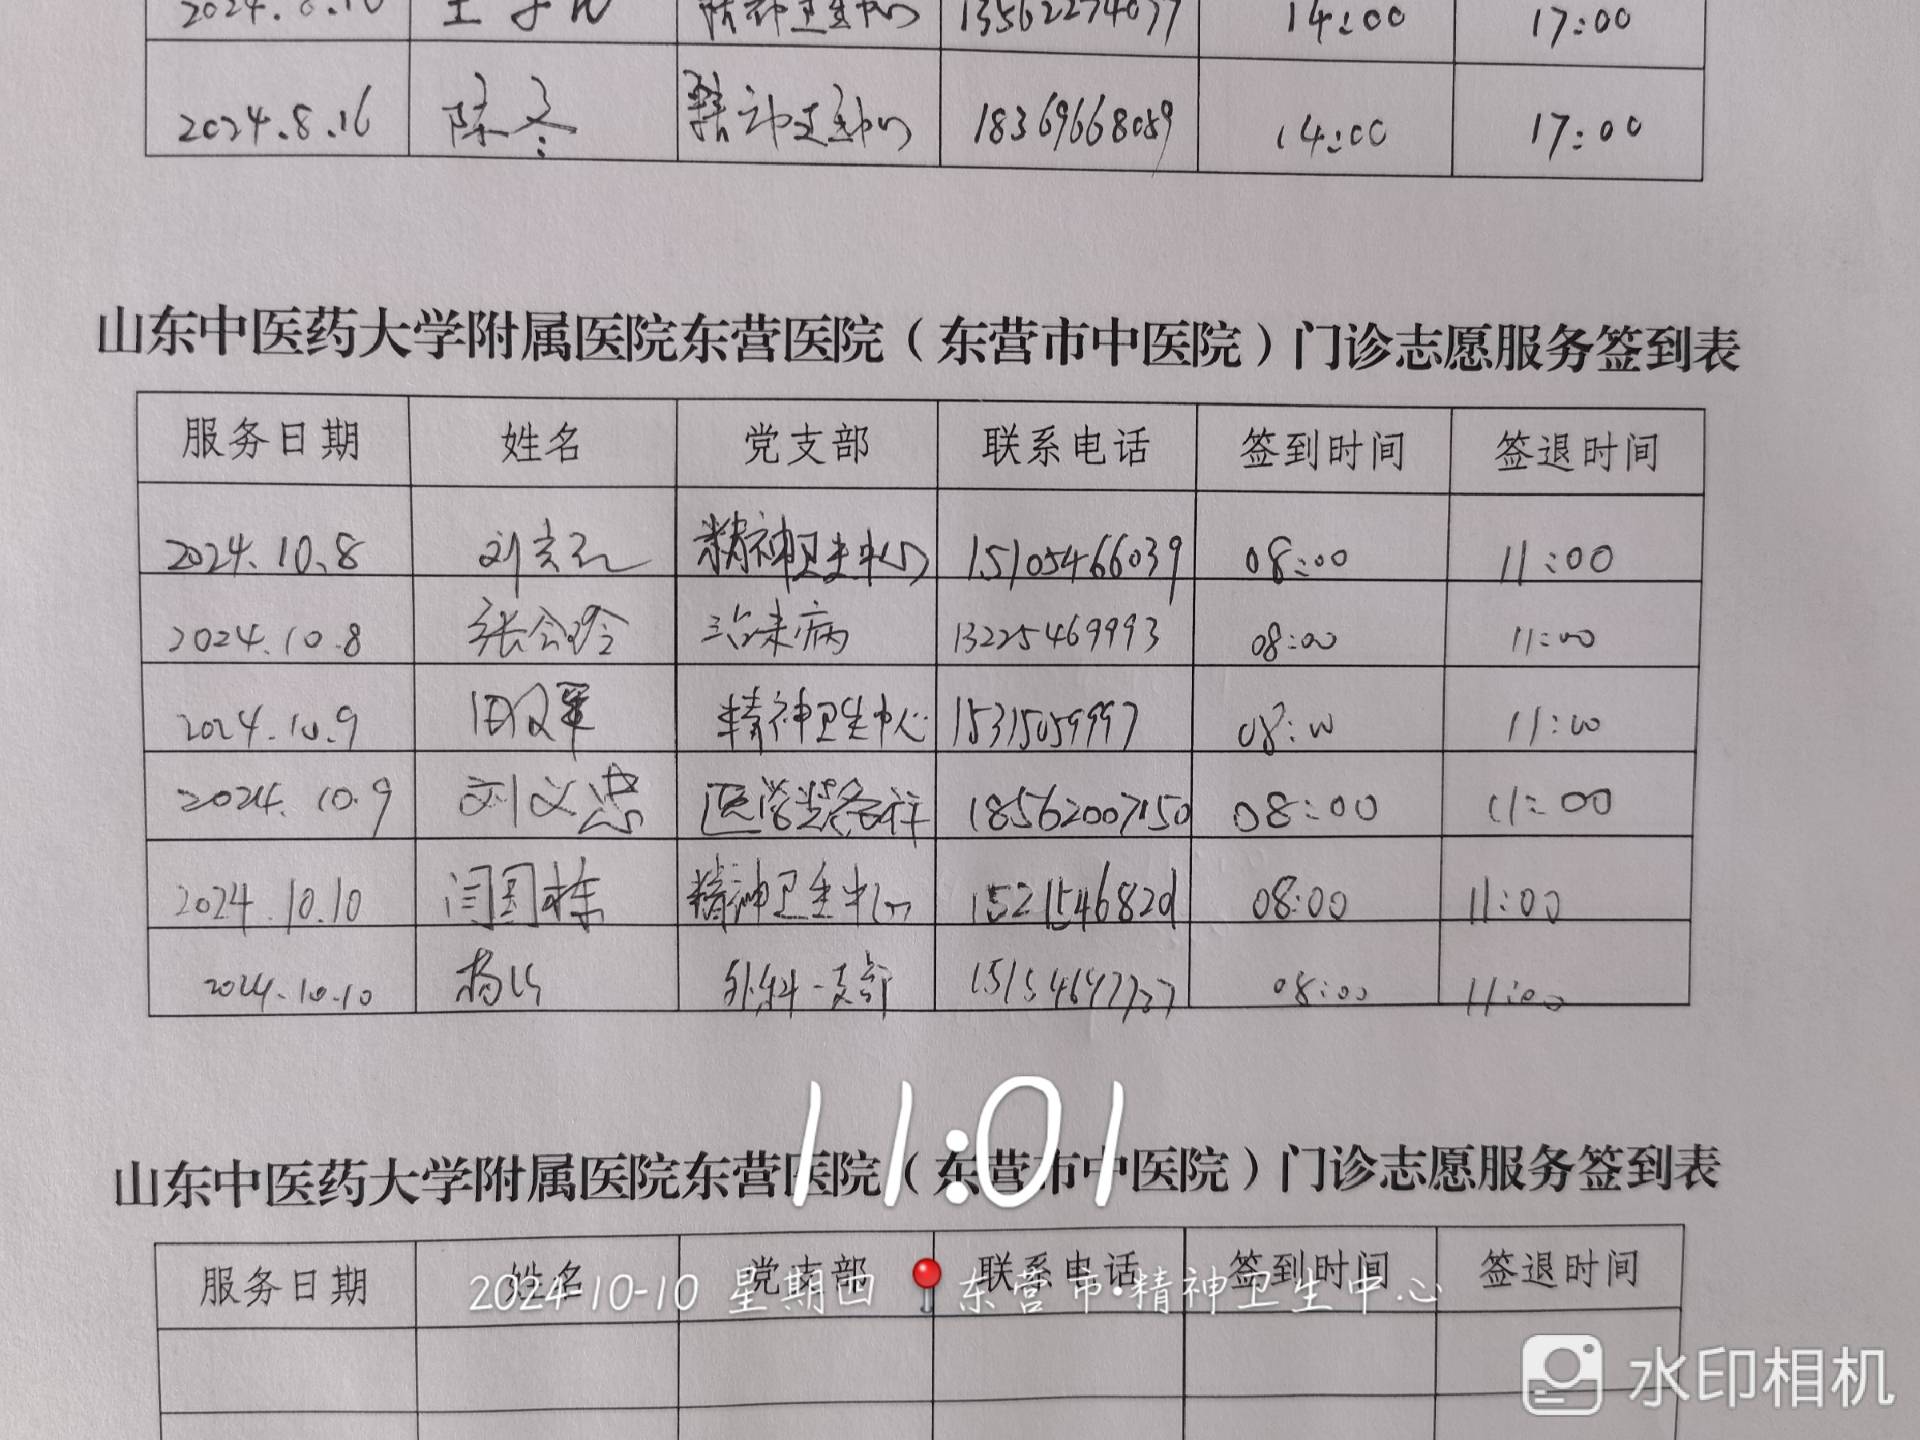 17:00
2024.8.16 陈冬 精神卫生中心 18369668089 14:00 17:00
山东中医药大学附属医院东营医院（东营市中医院）门诊志愿服务签到表
服务日期 姓名 党支部 联系电话 签到时间 签退时间
2024.10.8 精神卫生中心 15105466039 08:00 11:00
2024.10.8 治未病 13225469993 08:00 11:00
2024.10.9 精神卫生中心 15315059997 08:00 11:00
2024.10.9 刘义忠 18562007150 08:00 11:00
2024.10.10 闫国栋 精神卫生中心 08:00 11:00
2024.10.10 外科一支部 08:00 11:00
11:01
山东中医药大学附属医院东营医院（东营市中医院）门诊志愿服务签到表
服务日期 姓名 党支部 联系电话 签到时间 签退时间
2024-10-10 星期四 东营市·精神卫生中心
水印相机